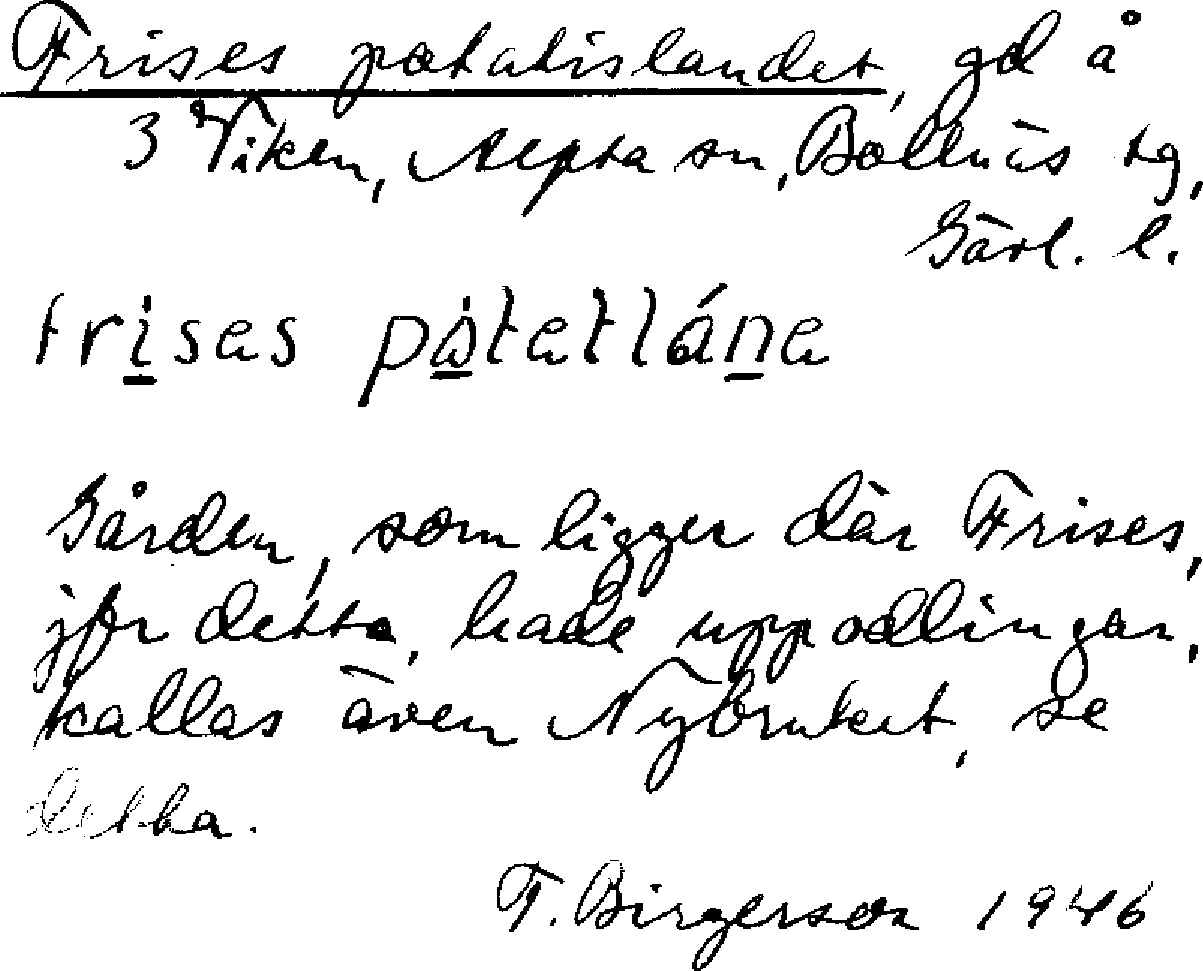 Frises potatislandet, gd å
3 Viken, Alfta sn, Bollnäs tg,
Gävl. l.
frises pàtatlána
Gården, som ligger där Frises,
jfr detta, hade uppodlingar,
kallas även Nybruket, se
detta.
F. Birgerson 1946